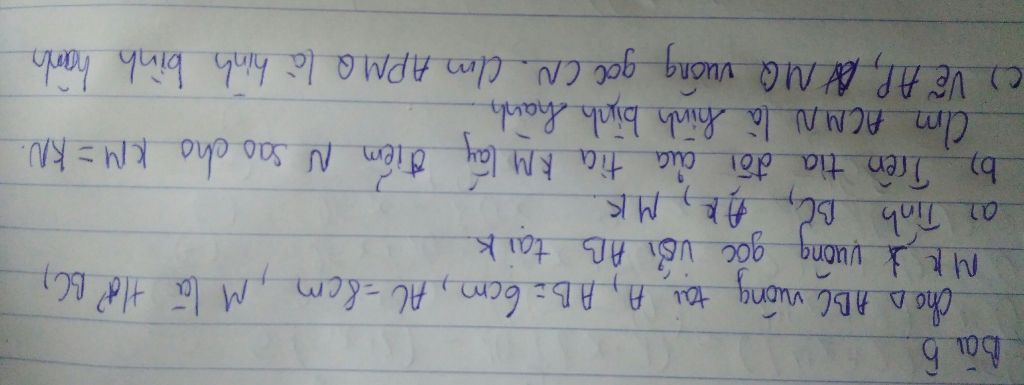 Bài 5
Cho Δ ABC vuông tại A, AB = 6cm, AC = 8cm, M là BC,
MK vuông góc với AB tại K
a) Tính BC, AK, MK.
b) Trên tia đối của tia KM lấy điểm N sao cho KM = KN.
Cm ACMN là hình bình hành.
c) Vẽ AP, MQ vuông góc CN. Cm APMQ là hình bình hành